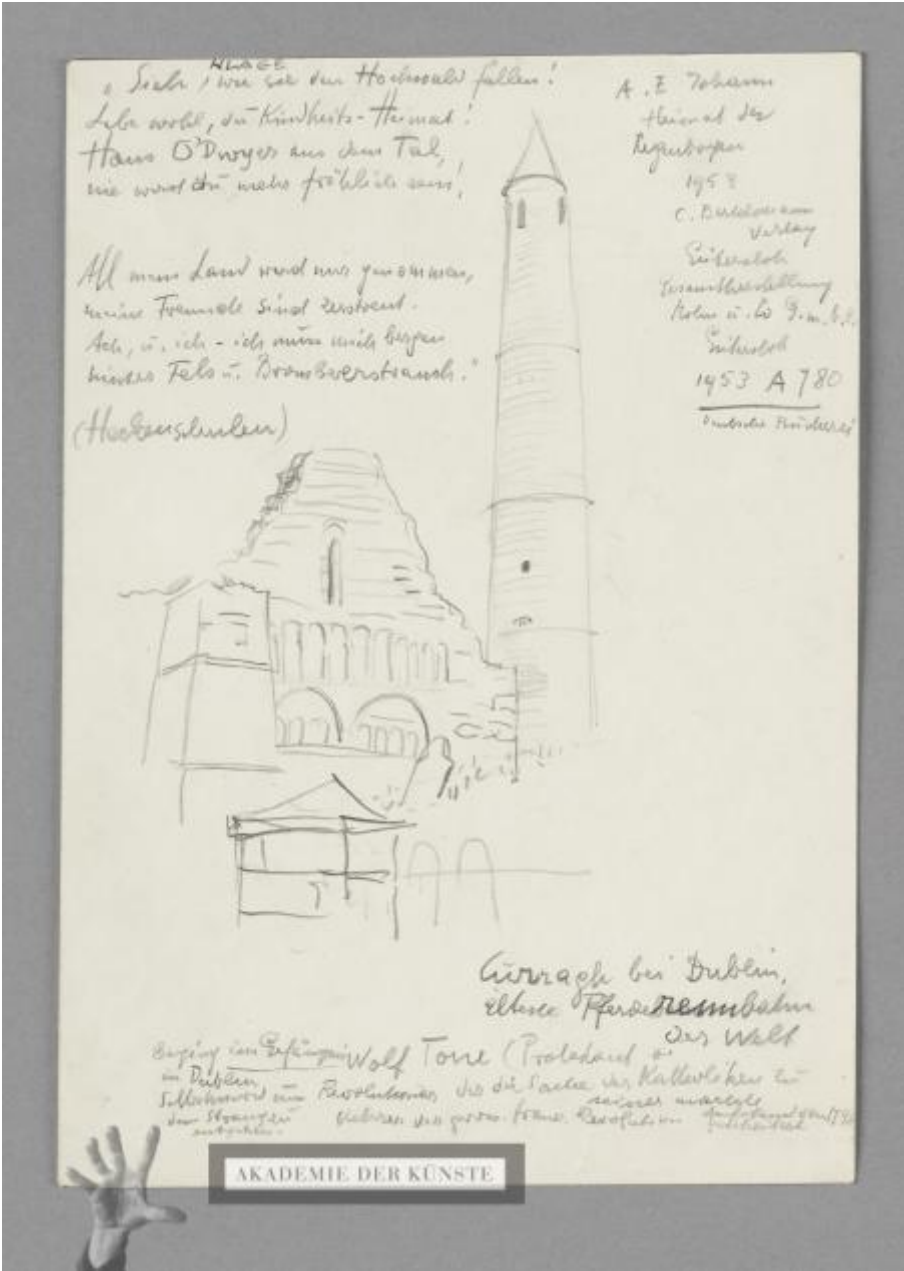 KLAGE
"Seht, wie sie den Hochwald fällen!
Lebe wohl, du Kindheits-Heimat!
Hans O'Dwyer aus dem Tal,
nie wirst du mehr fröhlich sein!
All mein Land ward mir genommen,
meine Freunde sind zerstreut.
Ach, u. ich - ich muss mich bergen
hinter Fels u. Brombeerstrauch."
(Heckenschulen)
A. E Johann
Heimat der
Regenbogen
1953
C. Bertelsmann
Verlag
Gütersloh
Gesamtherstellung
Mohn u. Co G.m.b.H.
Gütersloh
1953 A 780
Deutsche Bücherei
Curragh bei Dublin,
älteste Pferderennbahn
der Welt
Beging im Gefängnis
in Dublin
Selbstmord um
dem Strang zu
Wolf Tone (Protestant
Revolutionär der die Sache der Katholiken zu
seiner machte
Ideen der franz. Revolution
AKADEMIE DER KÜNSTE